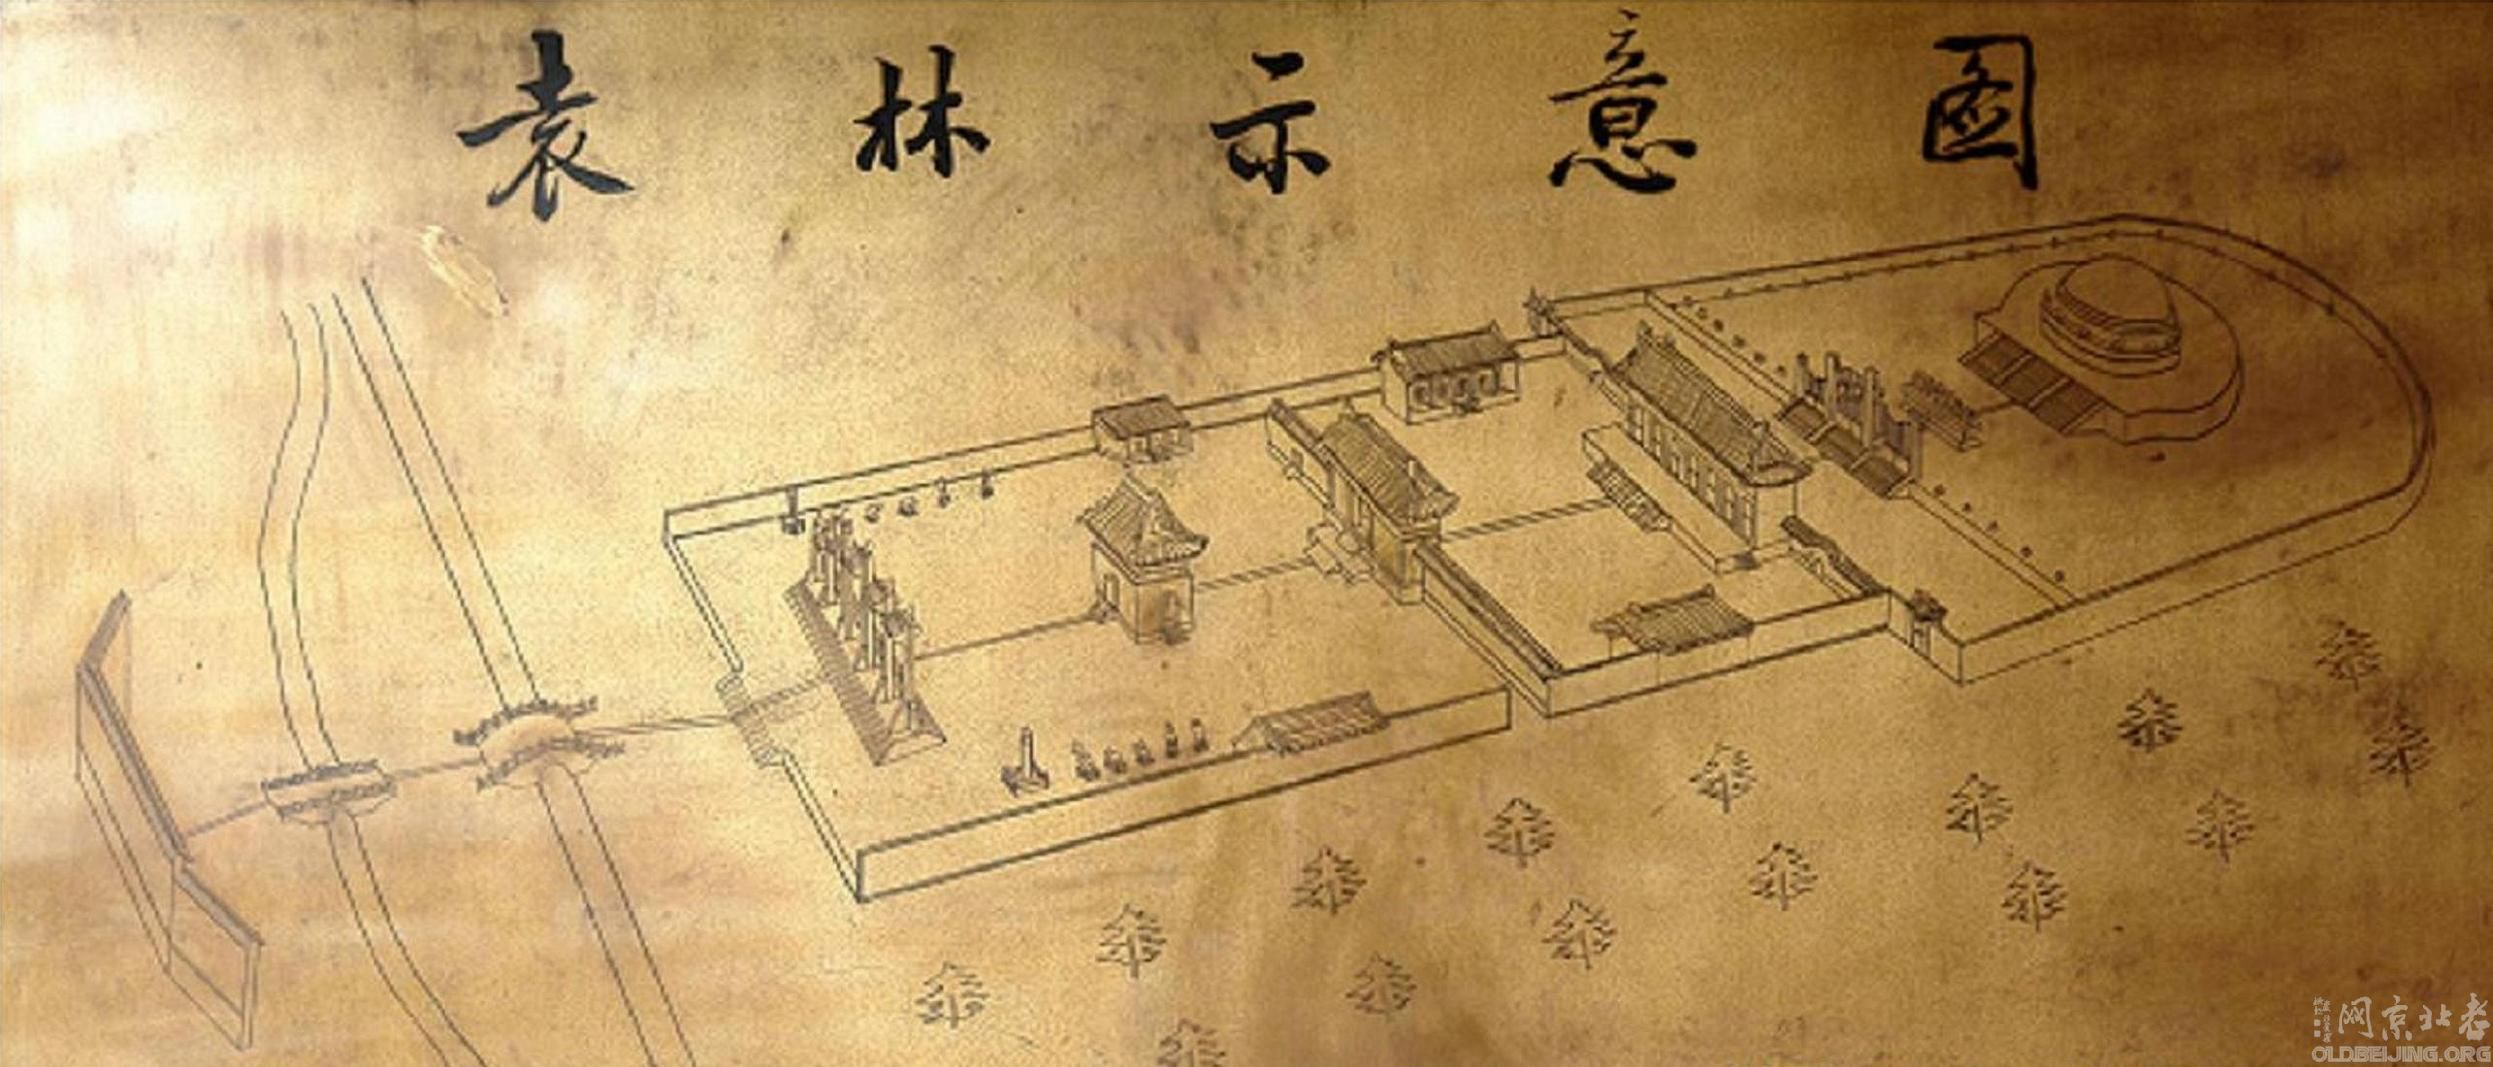 袁林示意图
老北京网
OLDBEIJING.ORG